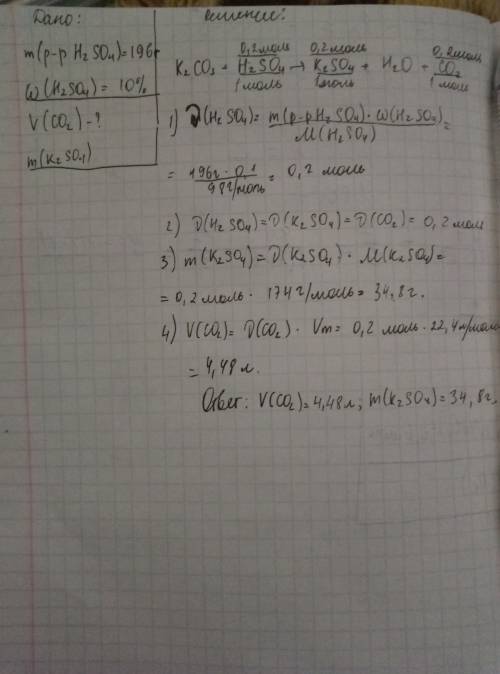 Дано:
m(р-р H2SO4)=196г
ω(H2SO4)=10%
V(CO2)-?
m(K2SO4)
Решение:
0,2моль 0,2моль 0,2моль
K2CO3 + H2SO4 → K2SO4 + H2O + CO2
1моль 1моль 1моль
1) ν(H2SO4)= m(р-рH2SO4)·ω(H2SO4) / M(H2SO4) =
= 196г·0,1 / 98г/моль = 0,2 моль
2) ν(H2SO4)=ν(K2SO4)=ν(CO2)= 0,2 моль
3) m(K2SO4)=ν(K2SO4)·M(K2SO4)=
=0,2 моль · 174 г/моль= 34,8г.
4) V(CO2)= ν(CO2)· Vm= 0,2 моль·22,4л/моль
= 4,48 л.
Ответ: V(CO2)=4,48л; m(K2SO4)=34,8г.